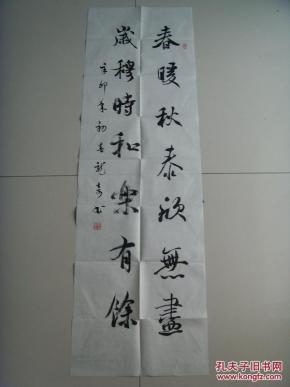 春暖秋泰欣無盡
歲穆時和樂有餘
辛卯年初春龍奇書
孔夫子旧书网